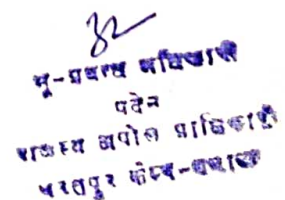 भू-प्रबन्ध अधिकारी
पदेन
राजस्व अपील प्राधिकारी
भरतपुर कैम्प-